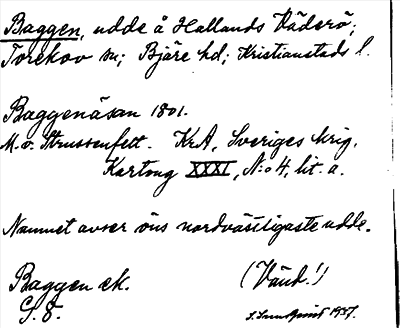 Baggen, udde å Hallands Väderö;
Torekov sn; Bjäre hd; Kristianstads l.
Baggenäsan 1801.
M. v. Strussenfelt. KrA, Sveriges krig,
Kartong XXXI, N:o 4, lit. a.
Namnet avser öns nordvästligaste udde.
Baggen ek.
(Vänd!)
S. 8.
1937.